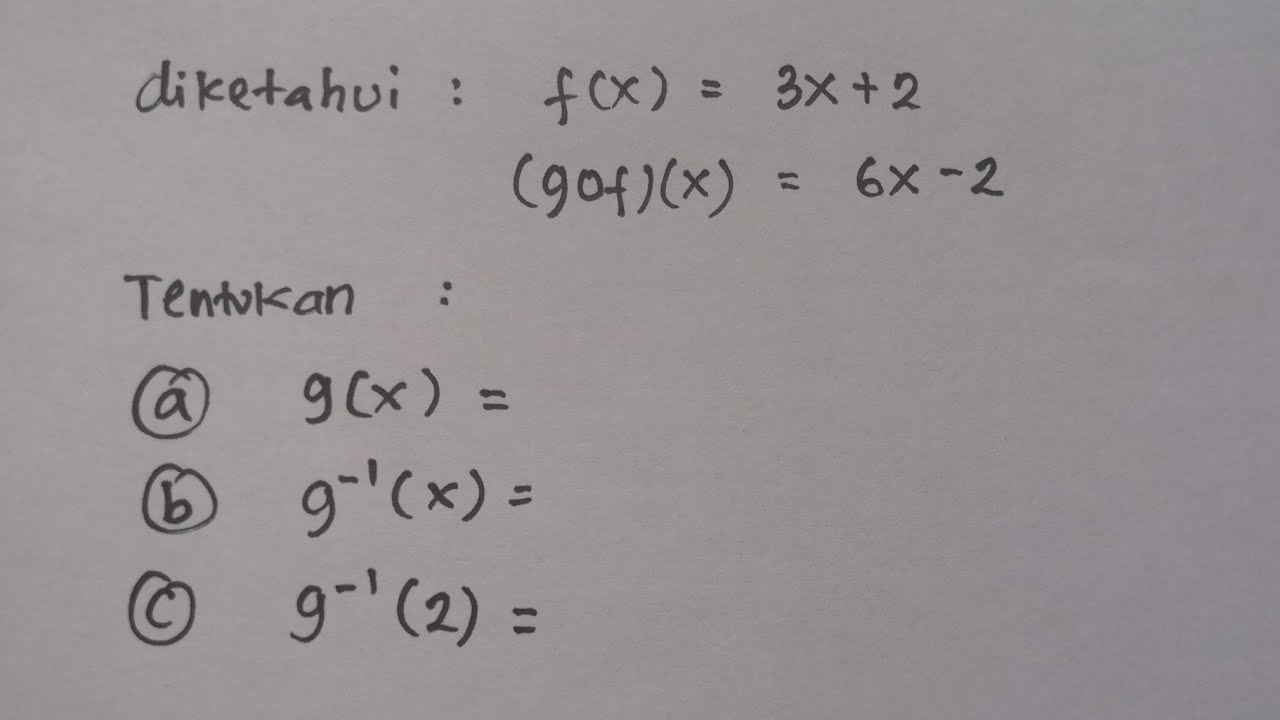 diketahui : f(x) = 3x + 2
(gof)(x) = 6x - 2
Tentukan :
a g(x) =
b g⁻¹(x) =
c g⁻¹(2) =